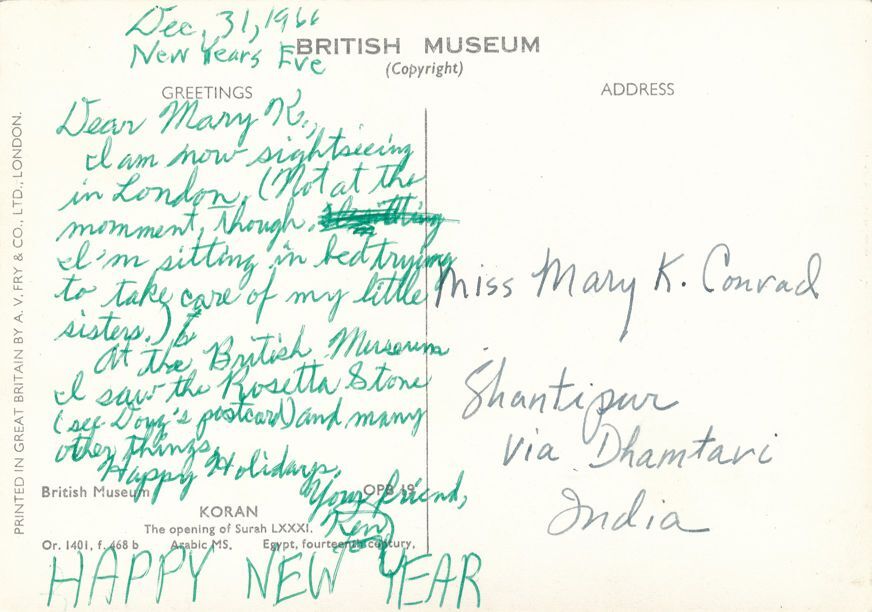 Dec, 31, 1966
New Years Eve
BRITISH MUSEUM
(Copyright)
GREETINGS
ADDRESS
PRINTED IN GREAT BRITAIN BY A. V. FRY & CO., LTD., LONDON.
Dear Mary K.,
I am now sightseeing
in London. (Not at the
momment, though.
I'm sitting in bed trying
to take care of my little
sisters.)
At the British Museum
I saw the Rosetta Stone
(see Doug's postcard) and many
other things.
Happy Holidays,
Your friend,
Ken
HAPPY NEW YEAR
British Museum OPB 19
KORAN
The opening of Surah LXXXI.
Or. 1401, f. 468 b Arabic MS. Egypt, fourteenth century.
Miss Mary K. Conrad
Shantipur
via Dhamtari
India